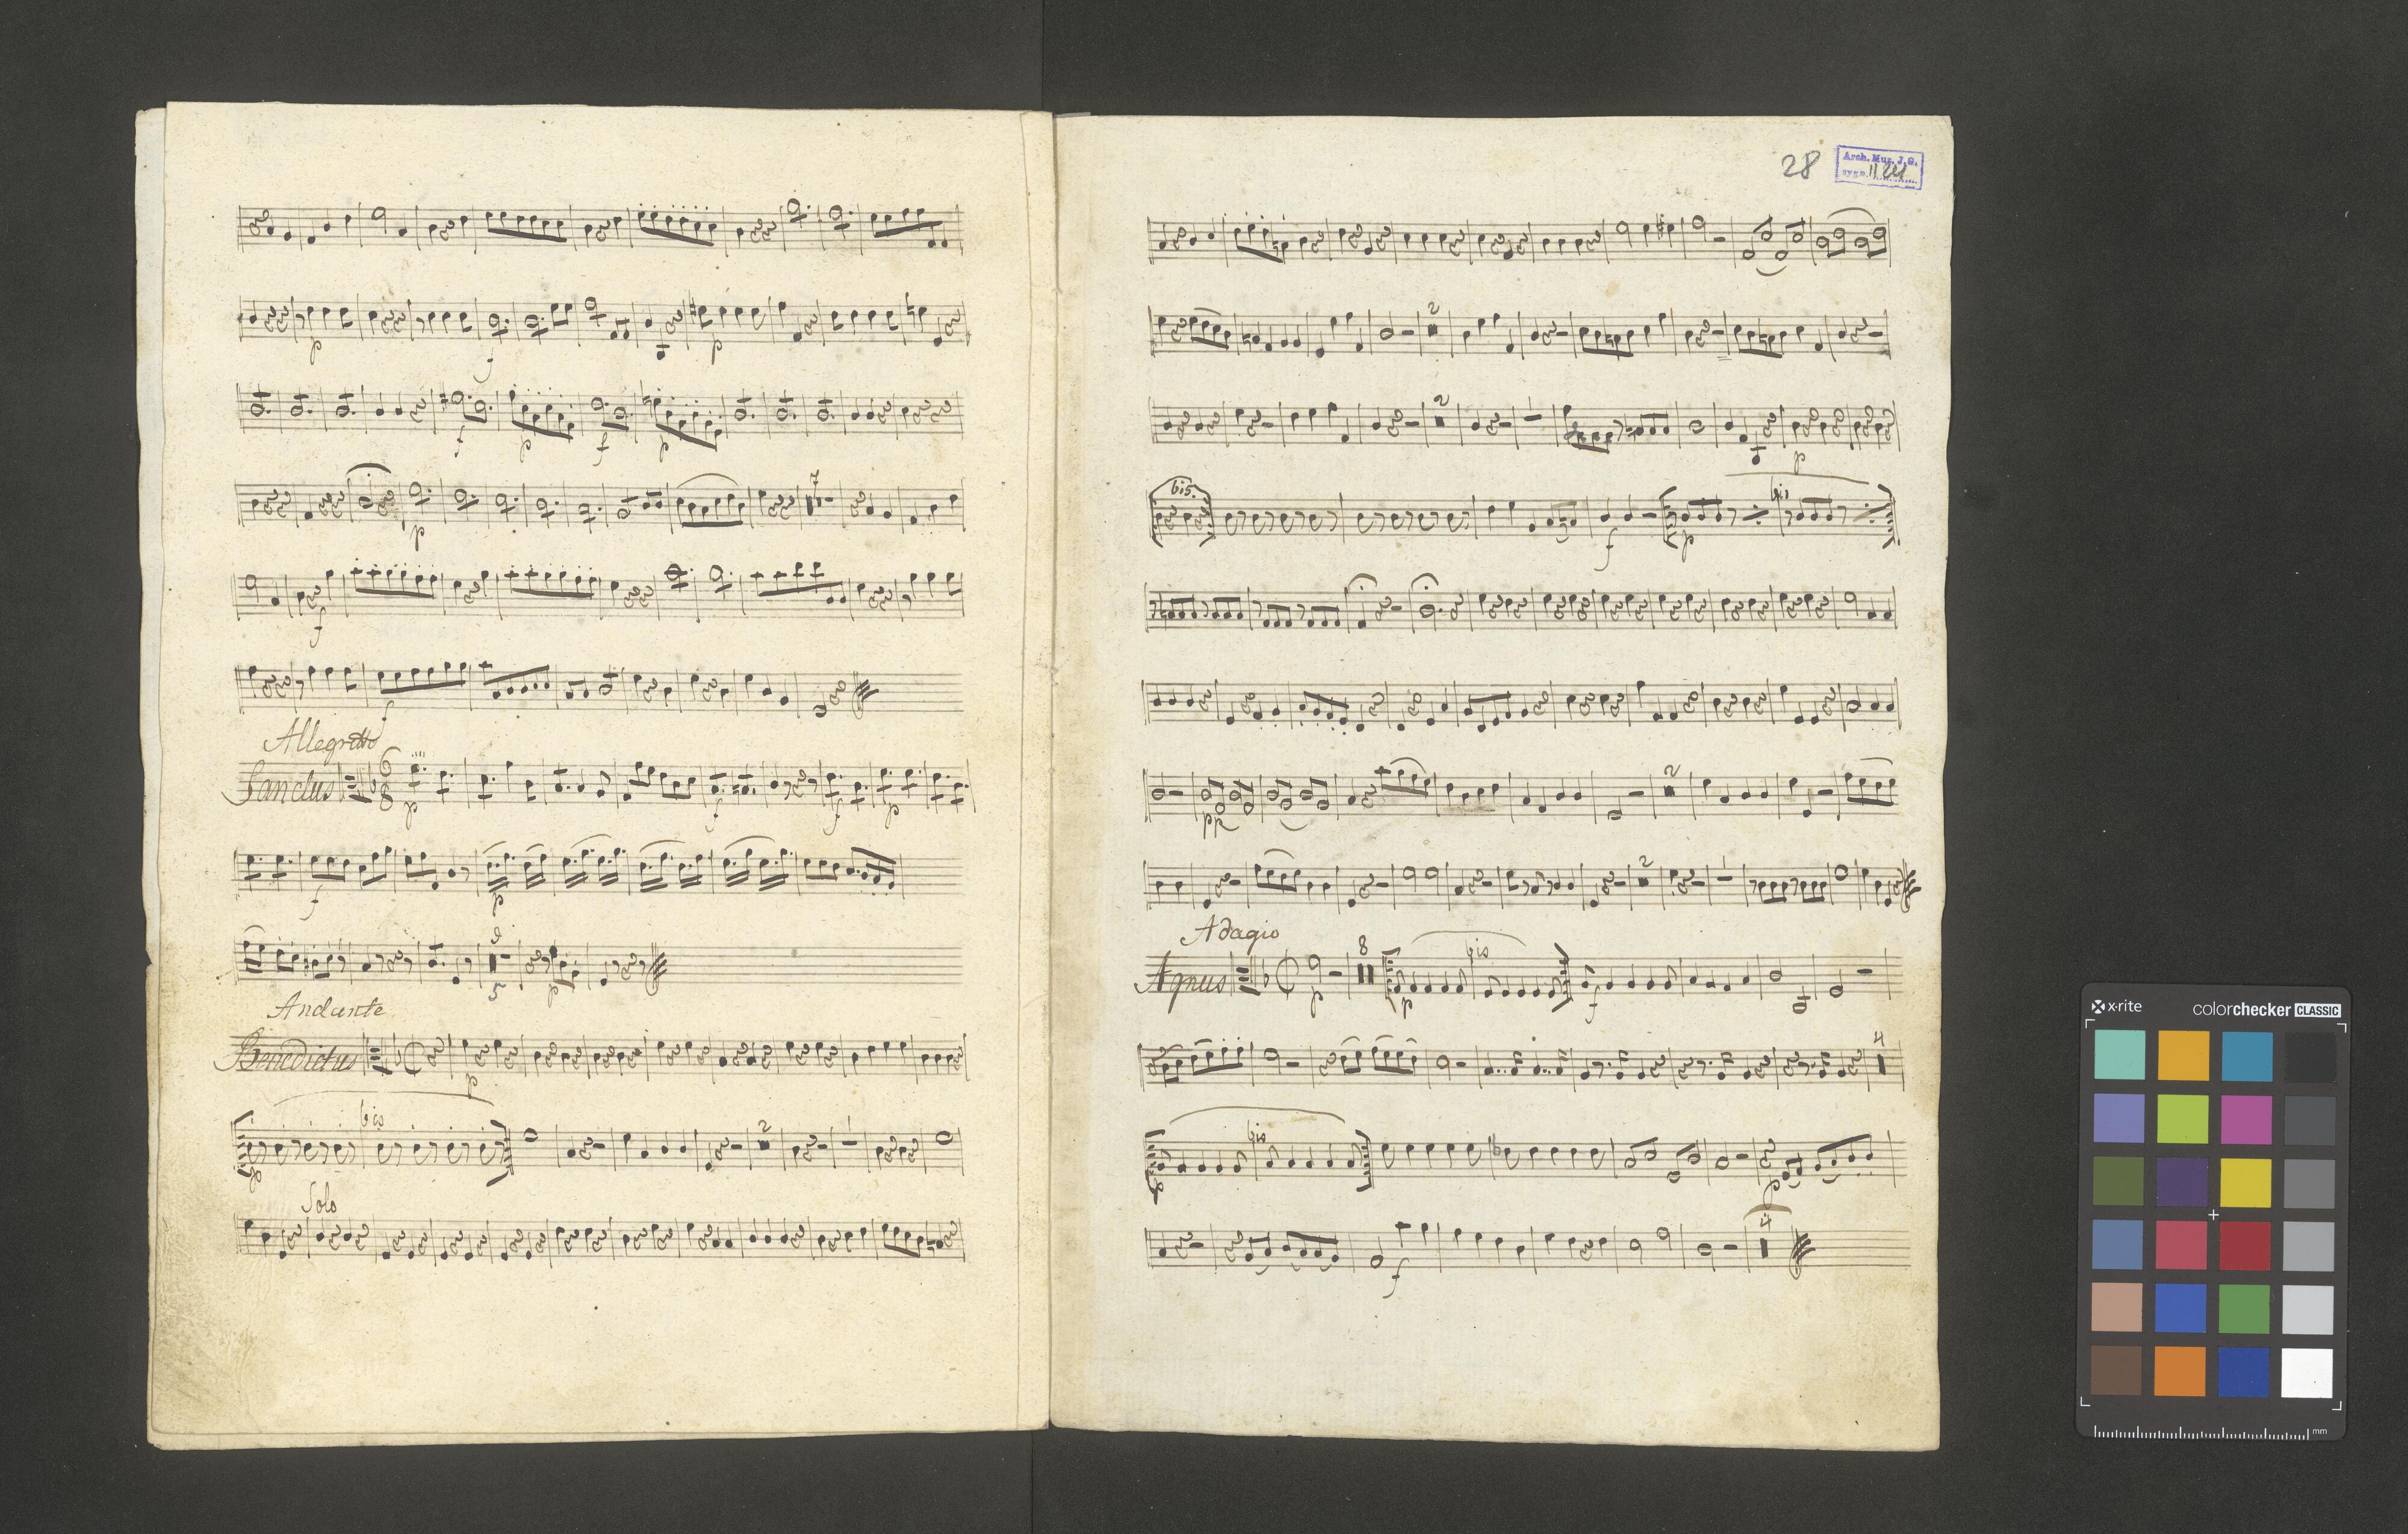 p
f
p
f
p
f
p
p
7
f
f
Allegretto
Sanctus
6
8
p
f
f
p
f
p
9
5
p
Andante
Benedictus
p
bis
p
2
Solo
28
Arch. Muz. J. G.
sygn.
2
2
p
bis.
f
p
bis
pp
2
2
Adagio
Agnus
p
8
p
bis
f
4
p
bis
p
f
4
x-rite
colorchecker CLASSIC
mm